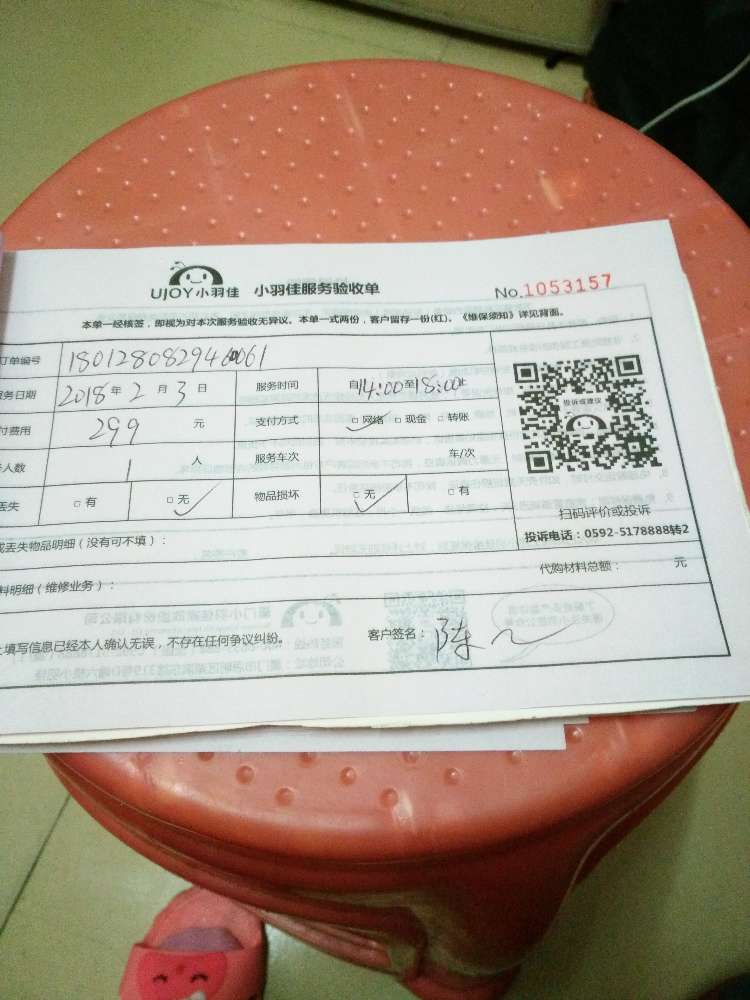 UJOY小羽佳 小羽佳服务验收单 No.1053157
本单一经核签，即视为对本次服务验收无异议。本单一式两份，客户留存一份(红)。《维保须知》详见背面。
订单编号
服务日期 2018年2月3日 服务时间 自14:00至18:00止
付费用 299 元 支付方式 □网络 □现金 □转账
人数 1 人 服务车次 车/次
丢失 □有 □无 物品损坏 □无 □有
投诉或建议
扫码评价或投诉
投诉电话：0592-5178888转2
或丢失物品明细（没有可不填）：
料明细（维修业务）： 代购材料总额： 元
上填写信息已经本人确认无误，不存在任何争议纠纷。 客户签名：陈